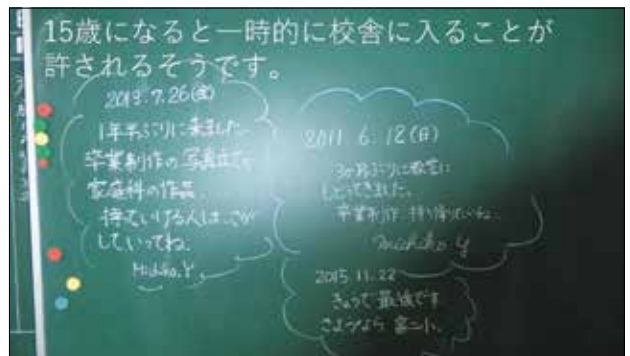 15歳になると一時的に校舎に入ることが
許されるそうです。
2013.7.26(金)
1年半ぶりに来ました
卒業制作の写真立てや
家庭科の作品
持っていける人はさが
していってね。
Michiko.Y
2011.6.12(日)
3か月ぶりに教室に
もどってきました。
卒業制作
Michiko.Y
2015.11.22
きっと最後です
さようなら 富二小